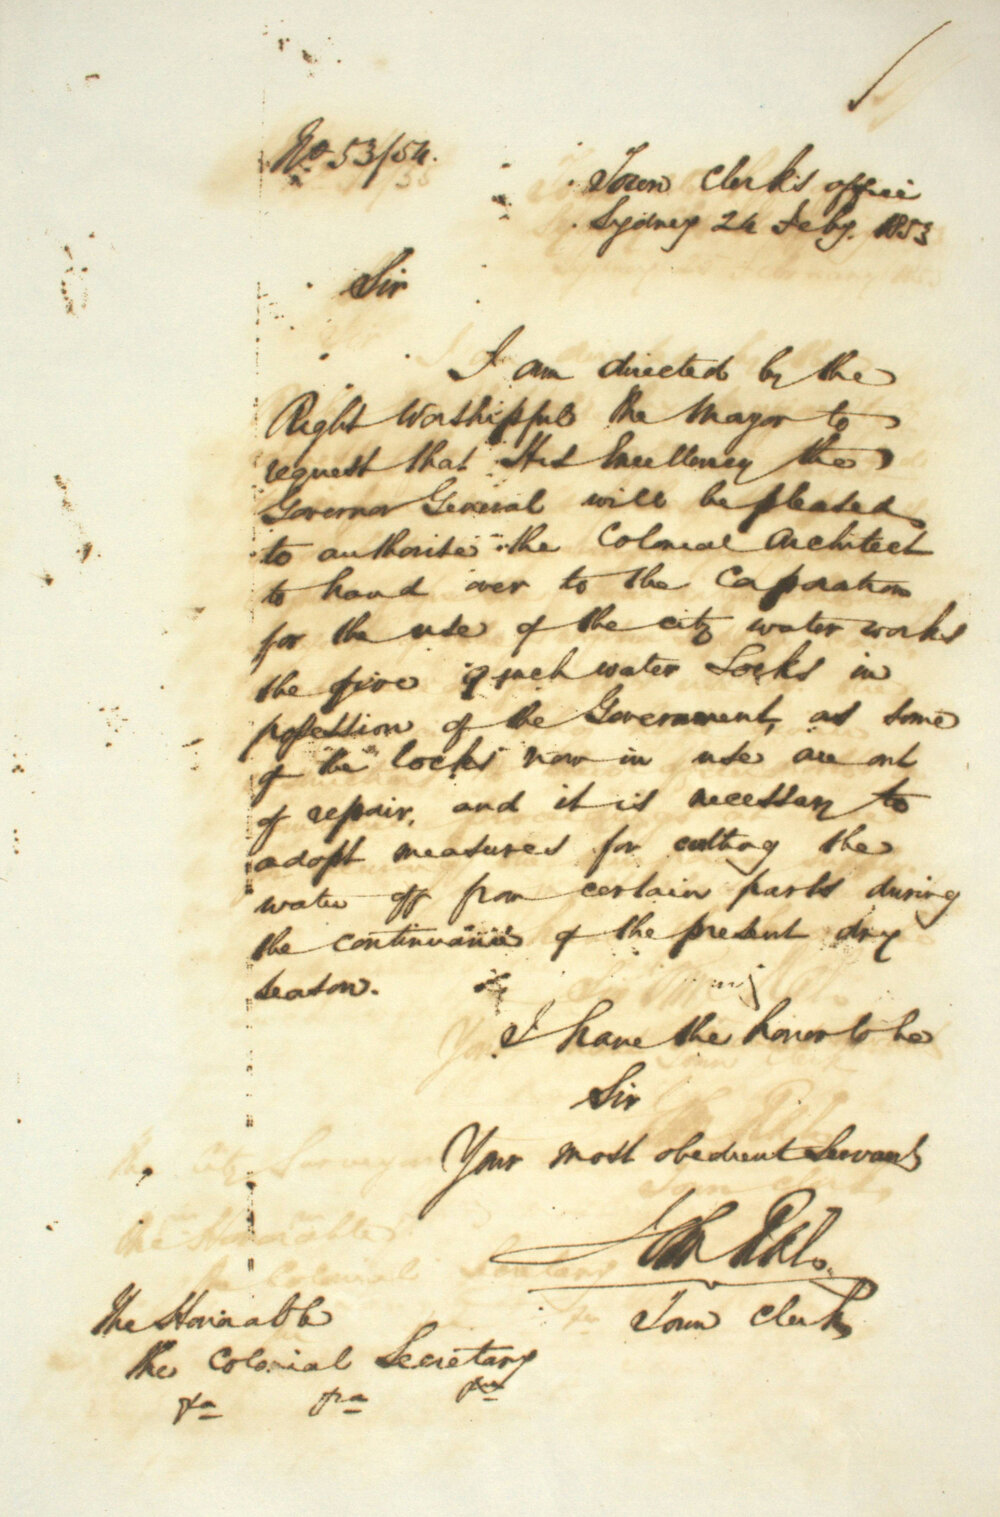 No 53/54.
Town Clerk's office
Sydney 24 Feby. 1853
Sir
I am directed by the
Right Worshipful the Mayor to
request that His Excellency the
Governor General will be pleased
to authorise the Colonial Architect
to hand over to the Corporation
for the use of the city water works
the five inch water Locks in
possession of the Government, as some
of the locks now in use are out
of repair, and it is necessary to
adopt measures for cutting the
water off from certain parts during
the continuance of the present dry
season.
I have the honor to be
Sir
Your most obedient Servant
Town Clerk
The Honorable
the Colonial Secretary